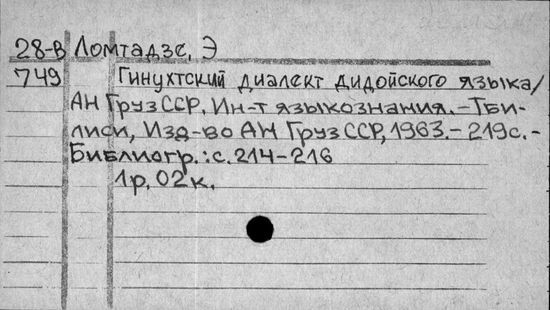 28-В Ломтадзе, Э
749 Гинухтский диалект дидойского языка/
АН ГрузССР. Ин-т языкознания.-Тби-
лиси, Изд-во АН ГрузССР, 1963.-219с.-
Библиогр.:с.214-216
1р.02к.